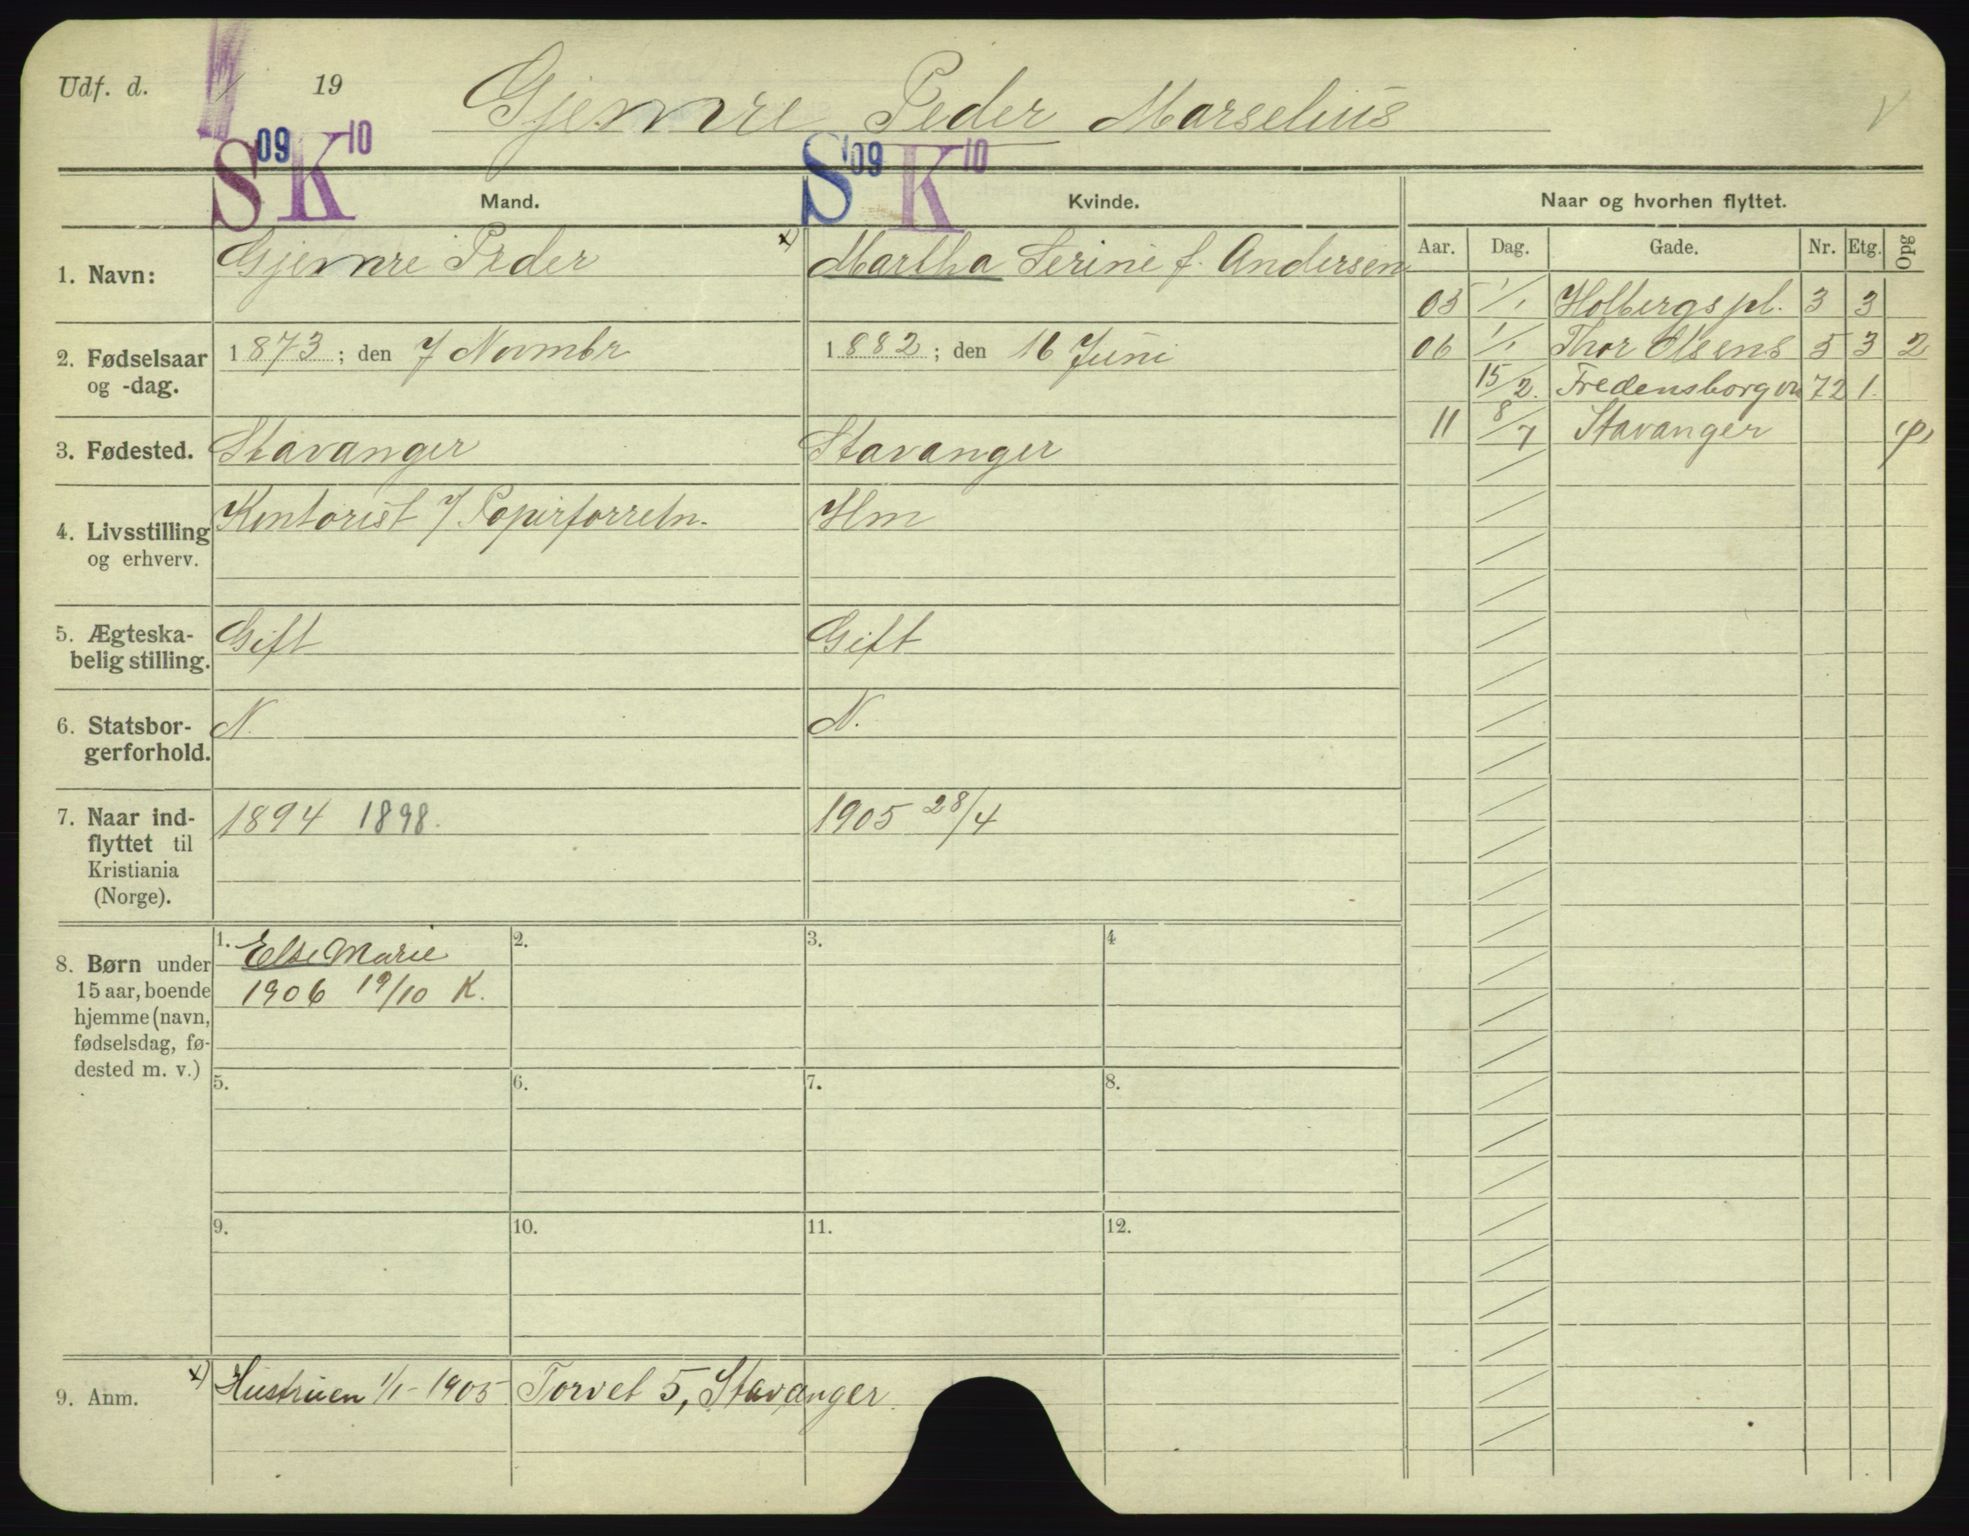 Udf. d. / 19
Gjemre Peder Marselius
S 09 K 10
S 09 K 10
Mand.
Kvinde.
Naar og hvorhen flyttet.
Aar. Dag. Gade. Nr. Etg. Opg
1. Navn: Gjemre Peder x) Martha Serine f. Andersen
05 1/1 Holbergs pl. 3 3
06 1/1 Thor Olsens 5 3 2
15/2. Fredensborgvn 72 1.
11 8/7 Stavanger
2. Fødselsaar og -dag. 1873; den 7 Novmbr 1882; den 16 Juni
3. Fødested. Stavanger Stavanger
4. Livsstilling og erhverv. Kontorist i Papirforretn. Hm
5. Ægteska-
belig stilling. Gift Gift
6. Statsbor-
gerforhold. N. N.
7. Naar ind-
flyttet til
Kristiania
(Norge).
1894 1898. 1905 28/4
8. Børn under
15 aar, boende
hjemme (navn,
fødselsdag, fø-
dested m. v.)
1. Else Marie
1906 19/10 K.
2. 3. 4
5. 6. 7. 8.
9. 10. 11. 12.
9. Anm. x) Hustruen 1/1-1905 Torvet 5, Stavanger.